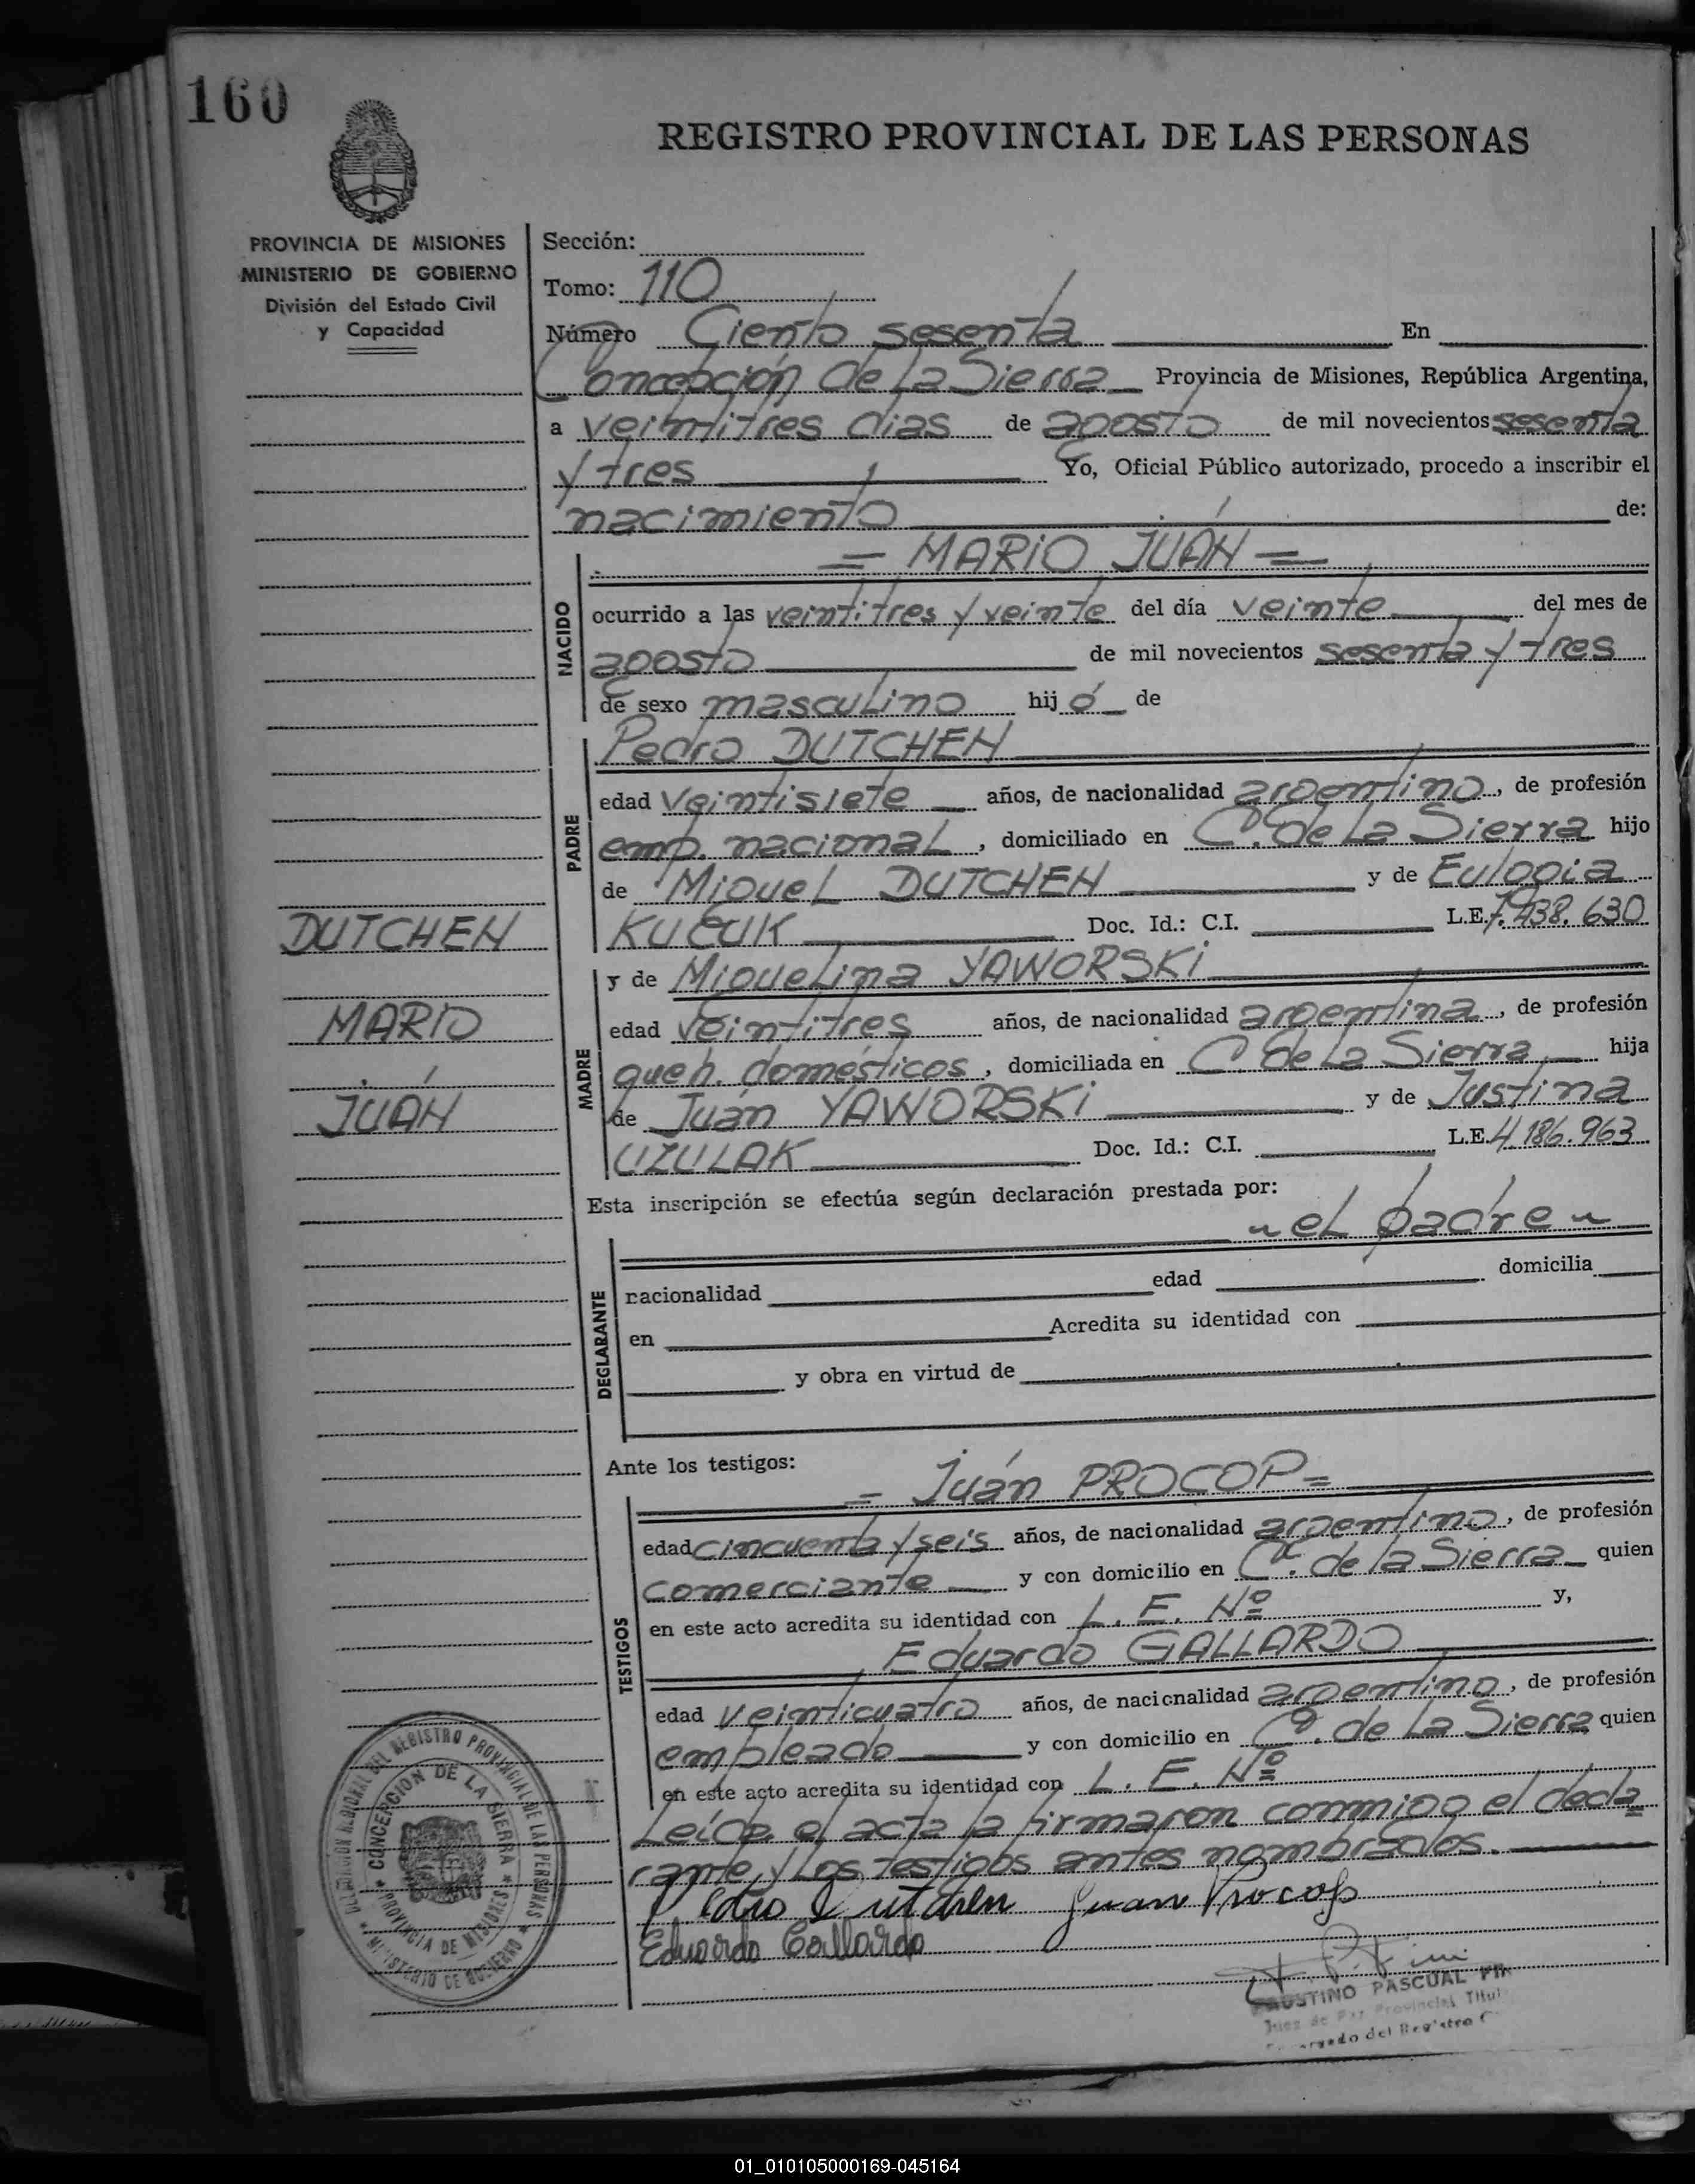 160
REGISTRO PROVINCIAL DE LAS PERSONAS
PROVINCIA DE MISIONES
MINISTERIO DE GOBIERNO
División del Estado Civil
y Capacidad
Sección:
Tomo: 110
Número Ciento sesenta En
Concepción de la Sierra Provincia de Misiones, República Argentina,
a veintitres dias de agosto de mil novecientos sesenta
y tres Yo, Oficial Público autorizado, procedo a inscribir el
nacimiento de:
= MARIO JUÁN =
NACIDO
ocurrido a las veintitres y veinte del día veinte del mes de
agosto de mil novecientos sesenta y tres
de sexo masculino hij o de
PADRE
Pedro DUTCHEN
edad veintisiete años, de nacionalidad argentino, de profesión
emp. nacional, domiciliado en C. de la Sierra hijo
de Miguel DUTCHEN y de Eulogia
KUCUK Doc. Id.: C.I. L.E. 7.438.630
DUTCHEN
MARIO
JUÁN
MADRE
y de Miguelina YAWORSKI
edad veintitres años, de nacionalidad argentina, de profesión
queh. domésticos, domiciliada en C. de la Sierra hija
de Juán YAWORSKI y de Justina
UZULAK Doc. Id.: C.I. L.E. 4.186.963
Esta inscripción se efectúa según declaración prestada por:
el padre
DECLARANTE
nacionalidad edad domicilia
en Acredita su identidad con
y obra en virtud de
Ante los testigos:
= Juán PROCOP =
TESTIGOS
edad cincuenta y seis años, de nacionalidad argentino, de profesión
comerciante y con domicilio en C. de la Sierra quien
en este acto acredita su identidad con L. E. Nº y,
Eduardo GALLARDO
edad veinticuatro años, de nacionalidad argentino, de profesión
empleado y con domicilio en C. de la Sierra quien
en este acto acredita su identidad con L. E. Nº
Leída el acta la firmaron conmigo el decla
rante y los testigos antes nombrados.
Pedro Dutchen Juan Procop
Eduardo Gallardo
DELEGACION REGIONAL DEL REGISTRO PROVINCIAL DE LAS PERSONAS
CONCEPCION DE LA SIERRA
PROVINCIA DE MISIONES
MINISTERIO DE GOBIERNO
FAUSTINO PASCUAL
Juez de Paz Provincial
del Registro
01_010105000169-045164